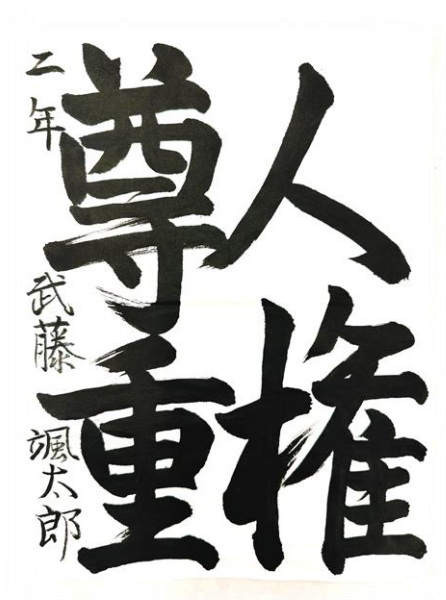 人権
尊重
二年 武藤 颯太郎